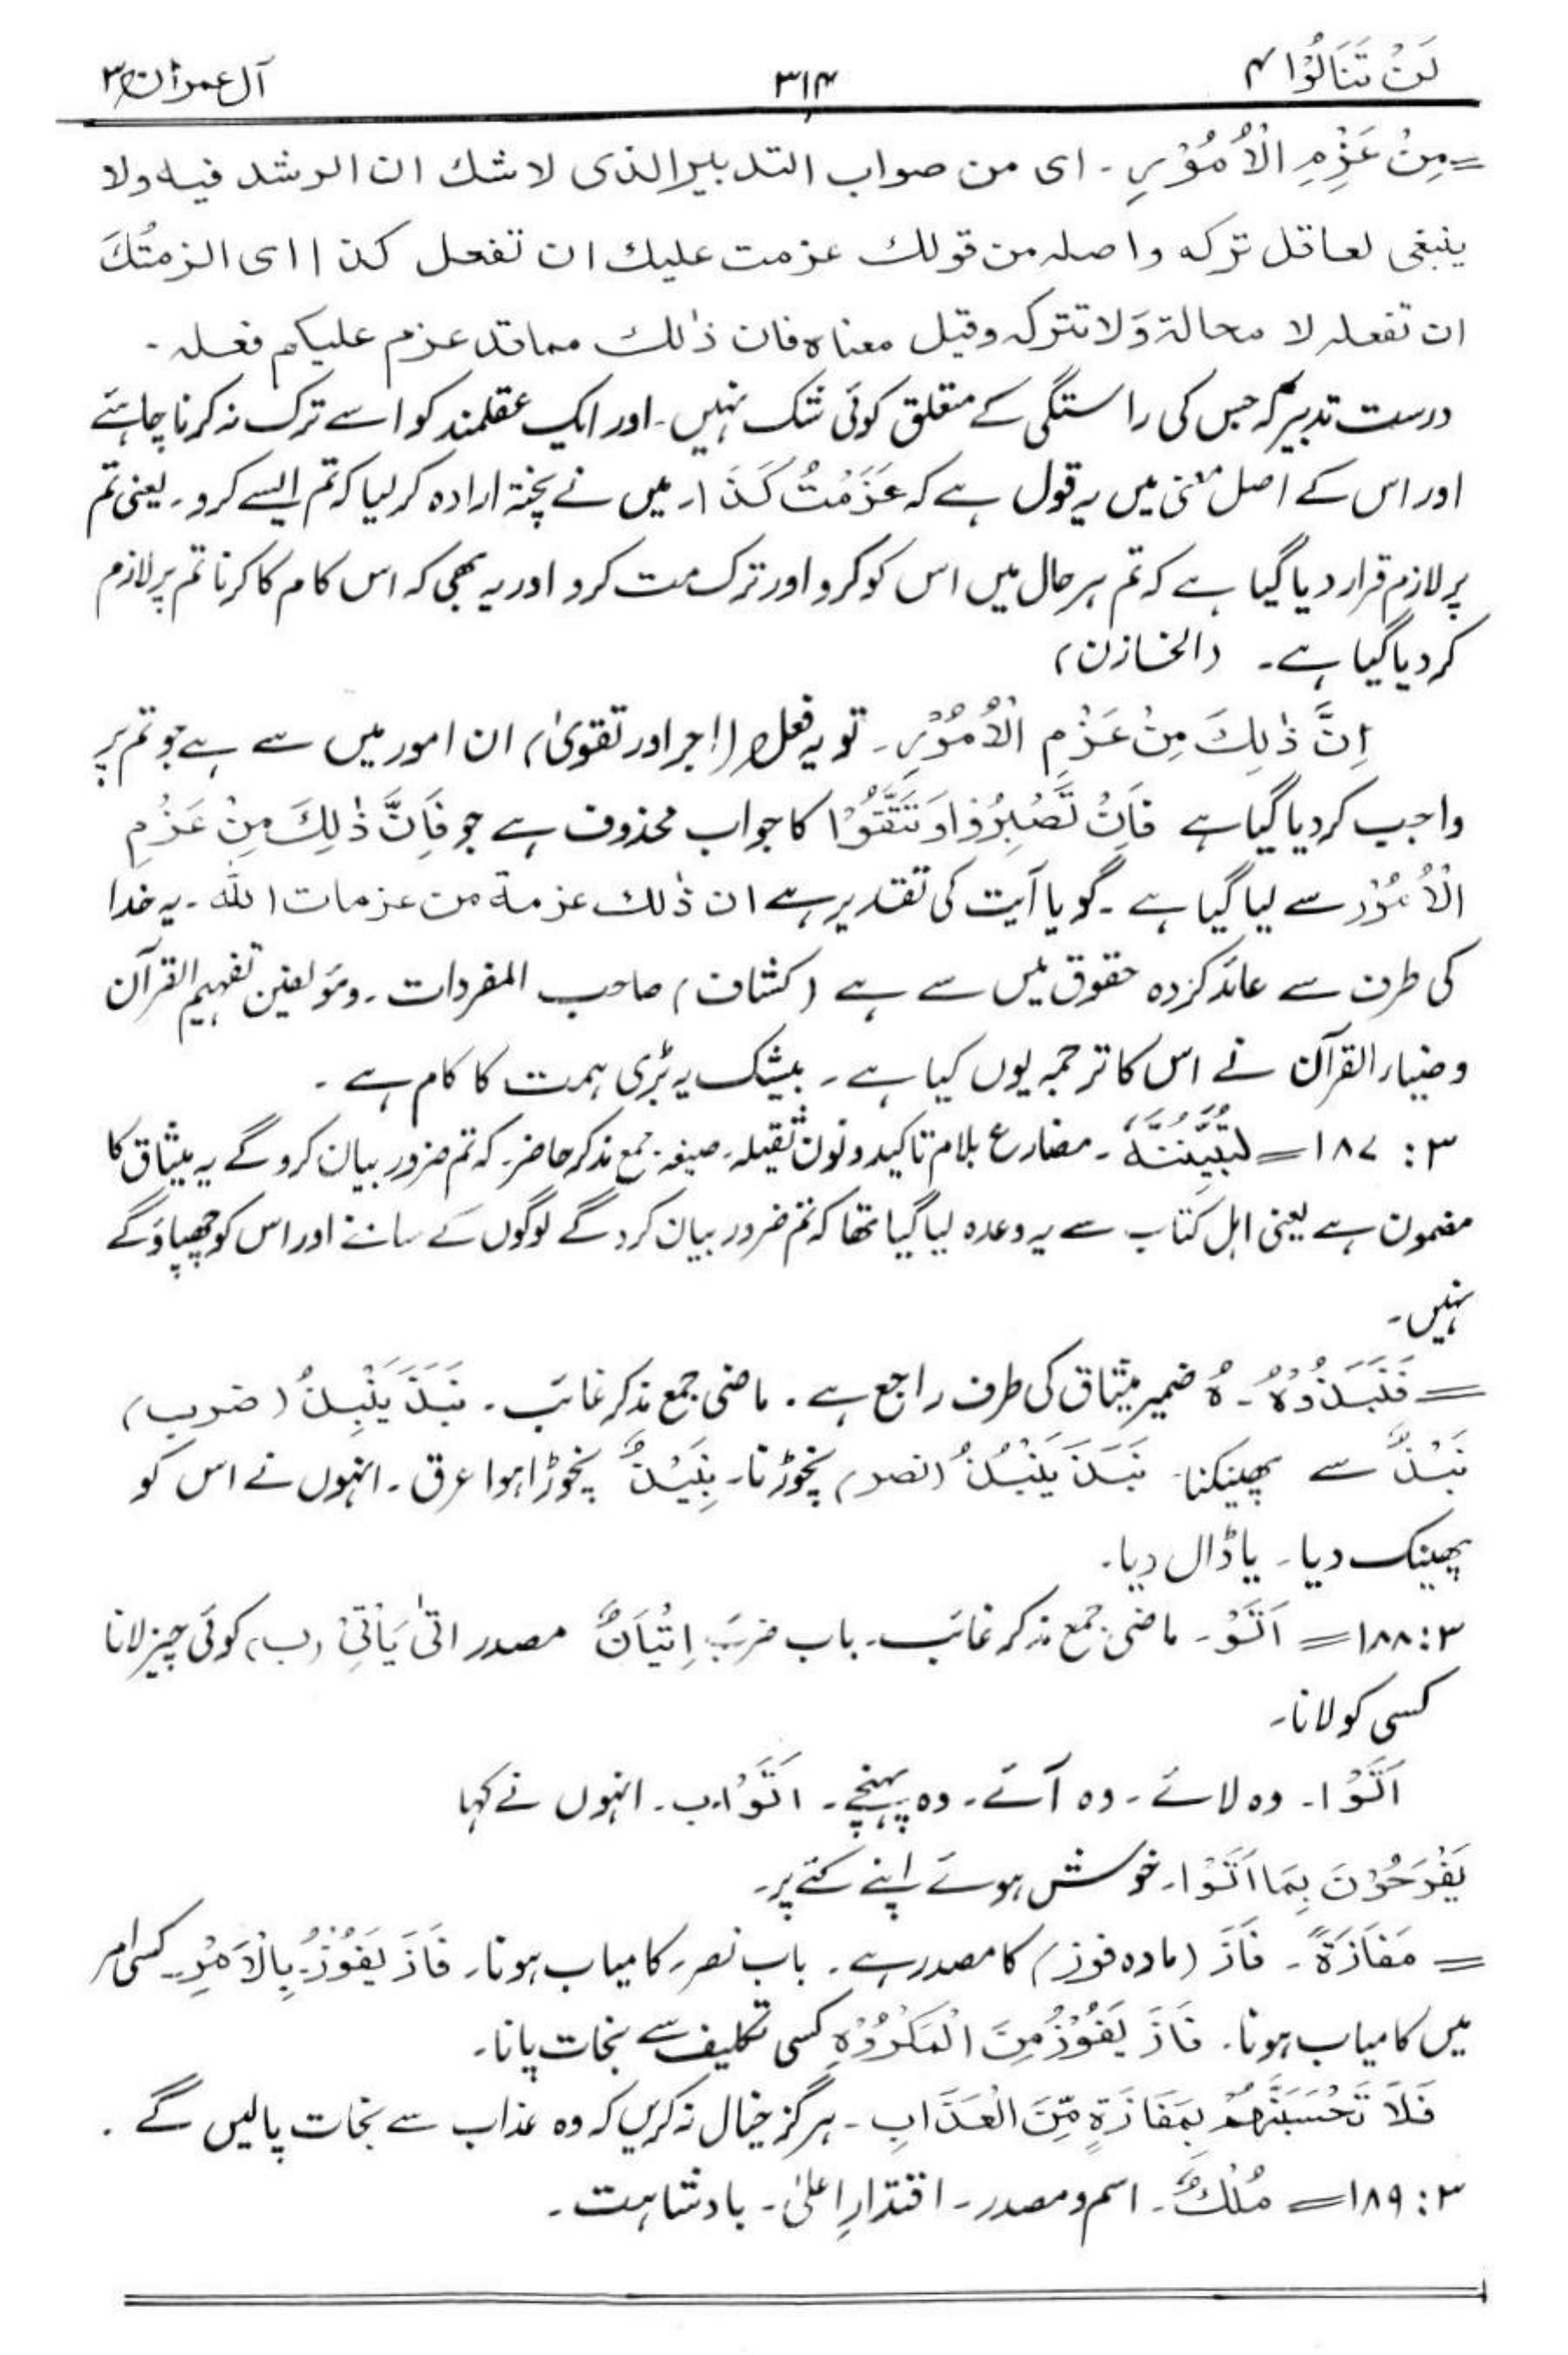 لَنْ تَنَالُوْا ۴ ۳۱۴ آل عمرٰن ۳
= مِنْ عَزْمِ الْاُمُوْرِ۔ ای من صواب التدبیر الذی لا شك ان الرشد فیہ ولا
ینبغی لعاقل ترکہ واصلہ من قولك عزمت علیك ان تفعل کذا ای الزمتُكَ
ان تفعلہ لا محالة وَلا تترکہ وقیل معناہ فان ذٰلك مما قد عزم علیکم فعلہ۔
درست تدبیر کہ جس کی راستگی کے متعلق کوئی شک نہیں۔ اور ایک عقلمند کو اسے ترک نہ کرنا چاہئے
اور اس کے اصل معنی میں یہ قول ہے کہ عَزَمْتُ کَذَا۔ میں نے پختہ ارادہ کر لیا کہ تم ایسے کرو۔ یعنی تم
پر لازم قرار دیا گیا ہے کہ تم ہر حال میں اس کو کرو اور ترک مت کرو اور یہ بھی کہ اس کام کا کرنا تم پر لازم
کر دیا گیا ہے۔ (الخازن)
اِنَّ ذٰلِكَ مِنْ عَزْمِ الْاُمُوْرِ۔ تو یہ فعل (اجر اور تقویٰ) ان امور میں سے ہے جو تم پر
واجب کر دیا گیا ہے فَاِنْ تَصْبِرُوْا وَتَتَّقُوْا کا جواب محذوف ہے جو فَاِنَّ ذٰلِكَ مِنْ عَزْمِ
الْاُمُوْرِ سے لیا گیا ہے۔ گویا آیت کی تقدیر ہے ان ذٰلك عزمة من عزمات اللہ۔ یہ خدا
کی طرف سے عائد کردہ حقوق میں سے ہے (کشاف) صاحب المفردات۔ ومؤلفین تفہیم القرآن
وضیاء القرآن نے اس کا ترجمہ یوں کیا ہے۔ بیشک یہ بڑی ہمت کا کام ہے۔
۳: ۱۸۷ = لَتُبَيِّنُنَّهٗ۔ مضارع بلام تاکید و نون ثقیلہ۔ صیغہ جمع مذکر حاضر۔ کہ تم ضرور بیان کرو گے یہ میثاق کا
مضمون ہے یعنی اہل کتاب سے یہ وعدہ لیا گیا تھا کہ تم ضرور بیان کرو گے لوگوں کے سامنے اور اس کو چھپاؤ گے
نہیں۔
= فَنَبَذُوْهُ۔ ہُ ضمیر میثاق کی طرف راجع ہے۔ ماضی جمع مذکر غائب۔ نَبَذَ یَنْبِذُ (ضرب)
نَبْذٌ سے پھینکنا۔ نَبَذَ یَنْبُذُ (نصر) نچوڑنا۔ نَبِیْذٌ نچوڑا ہوا عرق۔ انہوں نے اس کو
پھینک دیا۔ یا ڈال دیا۔
۳: ۱۸۸ = اَتَوْ۔ ماضی جمع مذکر غائب۔ باب ضَرَبَ اِتْیَانٌ مصدر اتٰی یَاْتِیْ (ب) کوئی چیز لانا
کسی کو لانا۔
اَتَوْا۔ وہ لائے۔ وہ آئے۔ وہ پہنچے۔ اَتَوْا۔ب۔ انہوں نے کہا
یَفْرَحُوْنَ بِمَا اَتَوْا۔ خوش ہوتے اپنے کئے پر۔
= مَفَازَةً۔ فَازَ (مادہ فوز) کا مصدر ہے۔ باب نصر۔ کامیاب ہونا۔ فَازَ یَفُوْزُ بِالْاَمْرِ۔ کسی امر
میں کامیاب ہونا۔ فَازَ یَفُوْزُ مِنَ الْمَکْرُوْہِ کسی تکلیف سے نجات پانا۔
فَلَا تَحْسَبَنَّهُمْ بِمَفَازَةٍ مِّنَ الْعَذَابِ۔ ہرگز خیال نہ کریں کہ وہ عذاب سے نجات پالیں گے۔
۳: ۱۸۹ = مُلْكٌ۔ اسم و مصدر۔ اقتدارِ اعلیٰ۔ بادشاہت۔